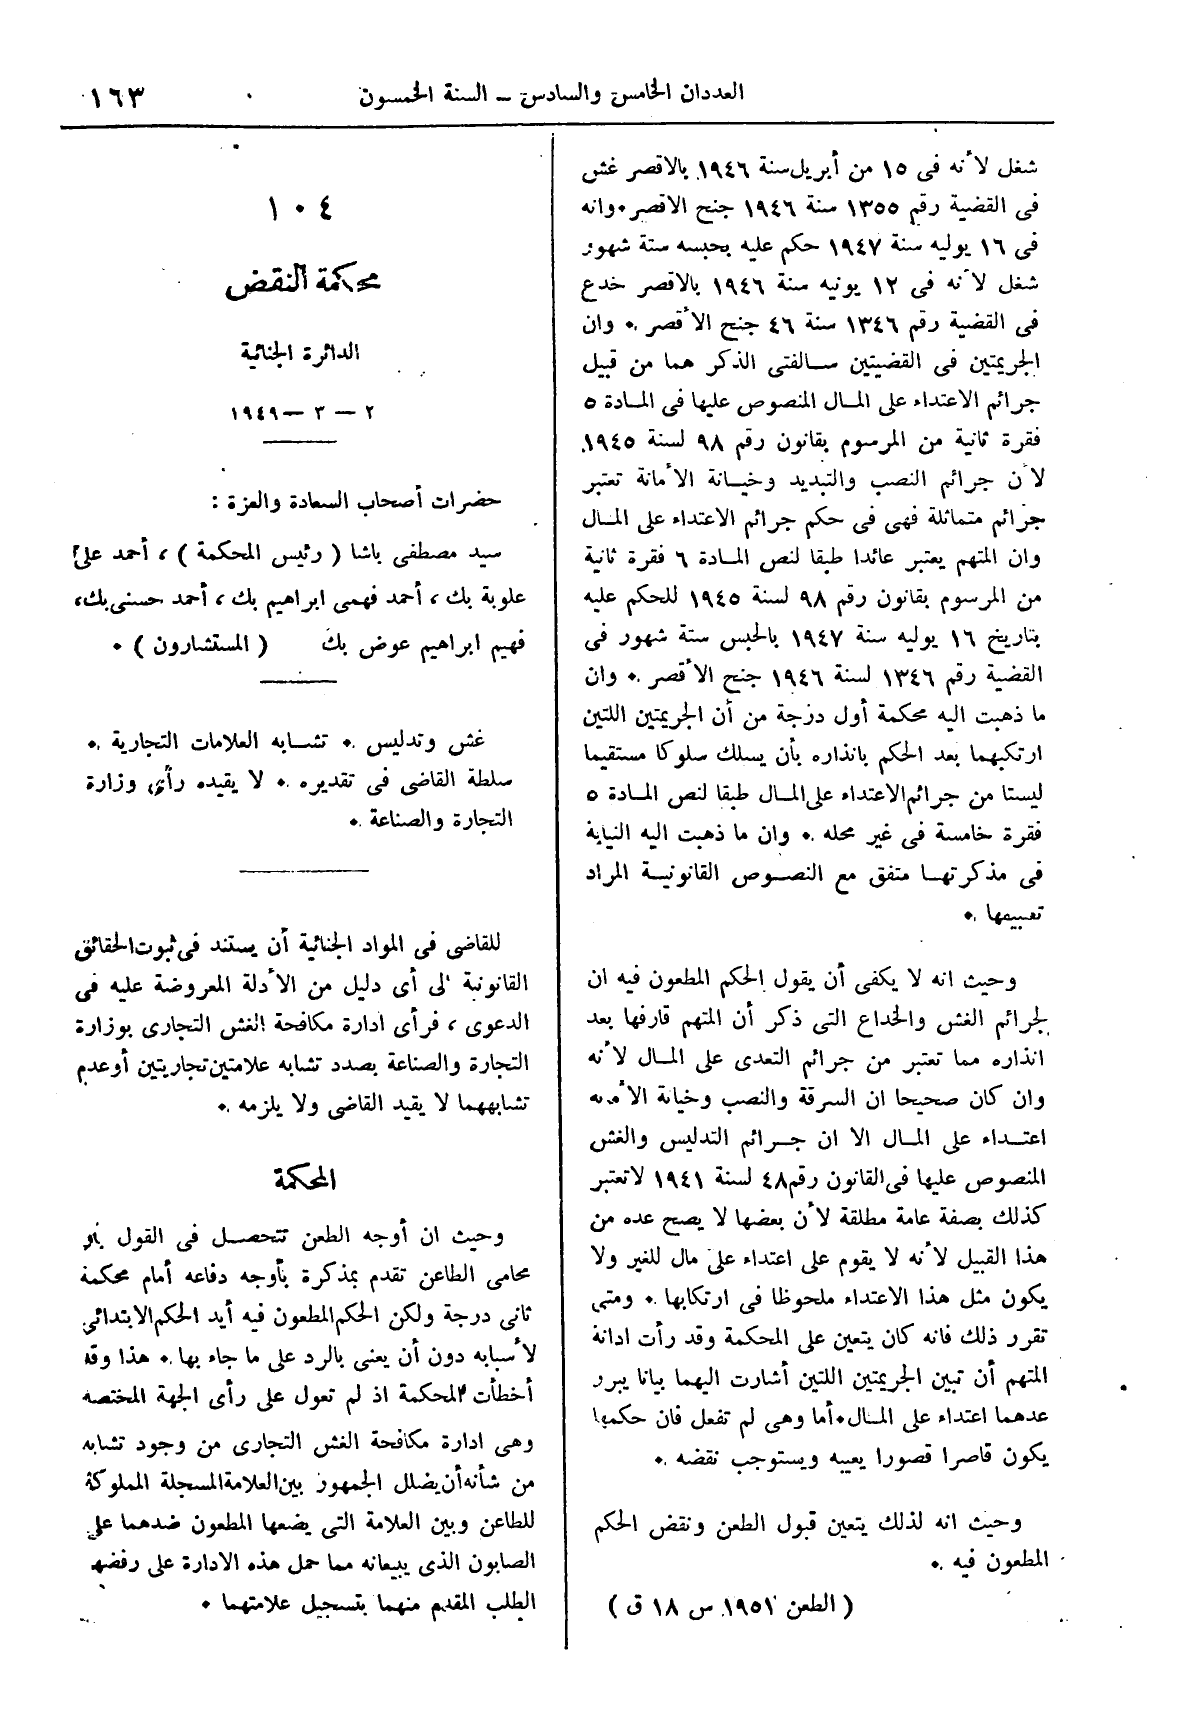 العددان الخامس والسادس – السنة الخمسون
١٦٣
شغل لأنه فى ١٥ من أبريل سنة ١٩٤٦ بالاقصر غش
فى القضية رقم ١٣٥٥ سنة ١٩٤٦ جنح الاقصر٠وانه
فى ١٦ يوليه سنة ١٩٤٧ حكم عليه بحبسه ستة شهور
شغل لأنه فى ١٢ يونيه سنة ١٩٤٦ بالاقصر خدع
فى القضية رقم ١٣٤٦ سنة ٤٦ جنح الأقصر ٠ وان
الجريمتين فى القضيتين سالفتى الذكر هما من قبيل
جرائم الاعتداء على المال المنصوص عليها فى المادة ٥
فقرة ثانية من المرسوم بقانون رقم ٩٨ لسنة ١٩٤٥
لأن جرائم النصب والتبديد وخيانة الأمانة تعتبر
جرائم متماثلة فهى فى حكم جرائم الاعتداء على المال
وان المتهم يعتبر عائدا طبقا لنص المادة ٦ فقرة ثانية
من المرسوم بقانون رقم ٩٨ لسنة ١٩٤٥ للحكم عليه
بتاريخ ١٦ يوليه سنة ١٩٤٧ بالحبس ستة شهور فى
القضية رقم ١٣٤٦ لسنة ١٩٤٦ جنح الأقصر ٠ وان
ما ذهبت اليه محكمة أول درجة من أن الجريمتين اللتين
ارتكبهما بعد الحكم بانذاره بأن يسلك سلوكا مستقيما
ليستا من جرائم الاعتداء على المال طبقا لنص المادة ٥
فقرة خامسة فى غير محله ٠ وان ما ذهبت اليه النيابة
فى مذكرتها متفق مع النصوص القانونية المراد
تعييبها ٠
وحيث انه لا يكفى أن يقول الحكم المطعون فيه ان
لجرائم الغش والخداع التى ذكر أن المتهم قارفها بعد
انذاره مما تعتبر من جرائم التعدى على المال لأنه
وان كان صحيحا ان السرقة والنصب وخيانة الأمانه
اعتداء على المال الا ان جرائم التدليس والغش
المنصوص عليها فى القانون رقم٤٨ لسنة ١٩٤١ لاتعتبر
كذلك بصفة عامة مطلقة لأن بعضها لا يصح عده من
هذا القبيل لأنه لا يقوم على اعتداء على مال للغير ولا
يكون مثل هذا الاعتداء ملحوظا فى ارتكابها ٠ ومتى
تقرر ذلك فانه كان يتعين على المحكمة وقد رأت ادانة
المتهم أن تبين الجريمتين اللتين أشارت اليهما بيانا يبرر
عدهما اعتداء على المال٠أما وهى لم تفعل فان حكمها
يكون قاصرا قصورا يعيبه ويستوجب نقضه ٠
وحيث انه لذلك يتعين قبول الطعن ونقض الحكم
المطعون فيه ٠
( الطعن ١٩٥١ س ١٨ ق )
١٠٤
محكمة النقض
الدائرة الجنائية
٢ – ٣ – ١٩٤٩
حضرات أصحاب السعادة والعزة :
سيد مصطفى باشا ( رئيس المحكمة ) ، أحمد على
علوبة بك ، أحمد فهمى ابراهيم بك ، أحمد حسنى بك،
فهيم ابراهيم عوض بك ( المستشارون ) ٠
غش وتدليس ٠ تشابه العلامات التجارية ٠
سلطة القاضى فى تقديره ٠ لا يقيده رأى وزارة
التجارة والصناعة ٠
للقاضى فى المواد الجنائية أن يستند فى ثبوت الحقائق
القانونية الى أى دليل من الأدلة المعروضة عليه فى
الدعوى ، فرأى ادارة مكافحة الغش التجارى بوزارة
التجارة والصناعة بصدد تشابه علامتين تجاريتين أوعدم
تشابههما لا يقيد القاضى ولا يلزمه ٠
المحكمة
وحيث ان أوجه الطعن تتحصل فى القول بأن
محامى الطاعن تقدم بمذكرة بأوجه دفاعه أمام محكمة
ثانى درجة ولكن الحكم المطعون فيه أيد الحكم الابتدائى
لأسبابه دون أن يعنى بالرد على ما جاء بها ٠ هذا وقد
أخطأت المحكمة اذ لم تعول على رأى الجهة المختصه
وهى ادارة مكافحة الغش التجارى من وجود تشابه
من شأنه أن يضلل الجمهور بين العلامة المسجلة المملوكة
للطاعن وبين العلامة التى يضعها المطعون ضدهما على
الصابون الذى يبيعانه مما حمل هذه الادارة على رفضها
الطلب المقدم منهما بتسجيل علامتهما ٠